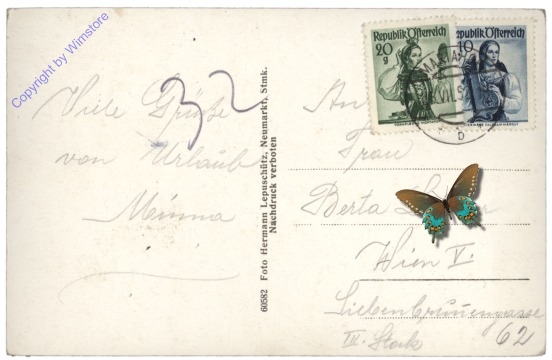 Copyright by Wimstore
Viele Grüße
von Urlaub
Minna
32
60582 Foto Hermann Lepuschütz, Neumarkt, Stmk.
Nachdruck verboten
Republik Österreich
20
g
Republik Österreich
10
b
An
Frau
Berta
Wien V.
Siebenbrunnengasse
62
III. Stock